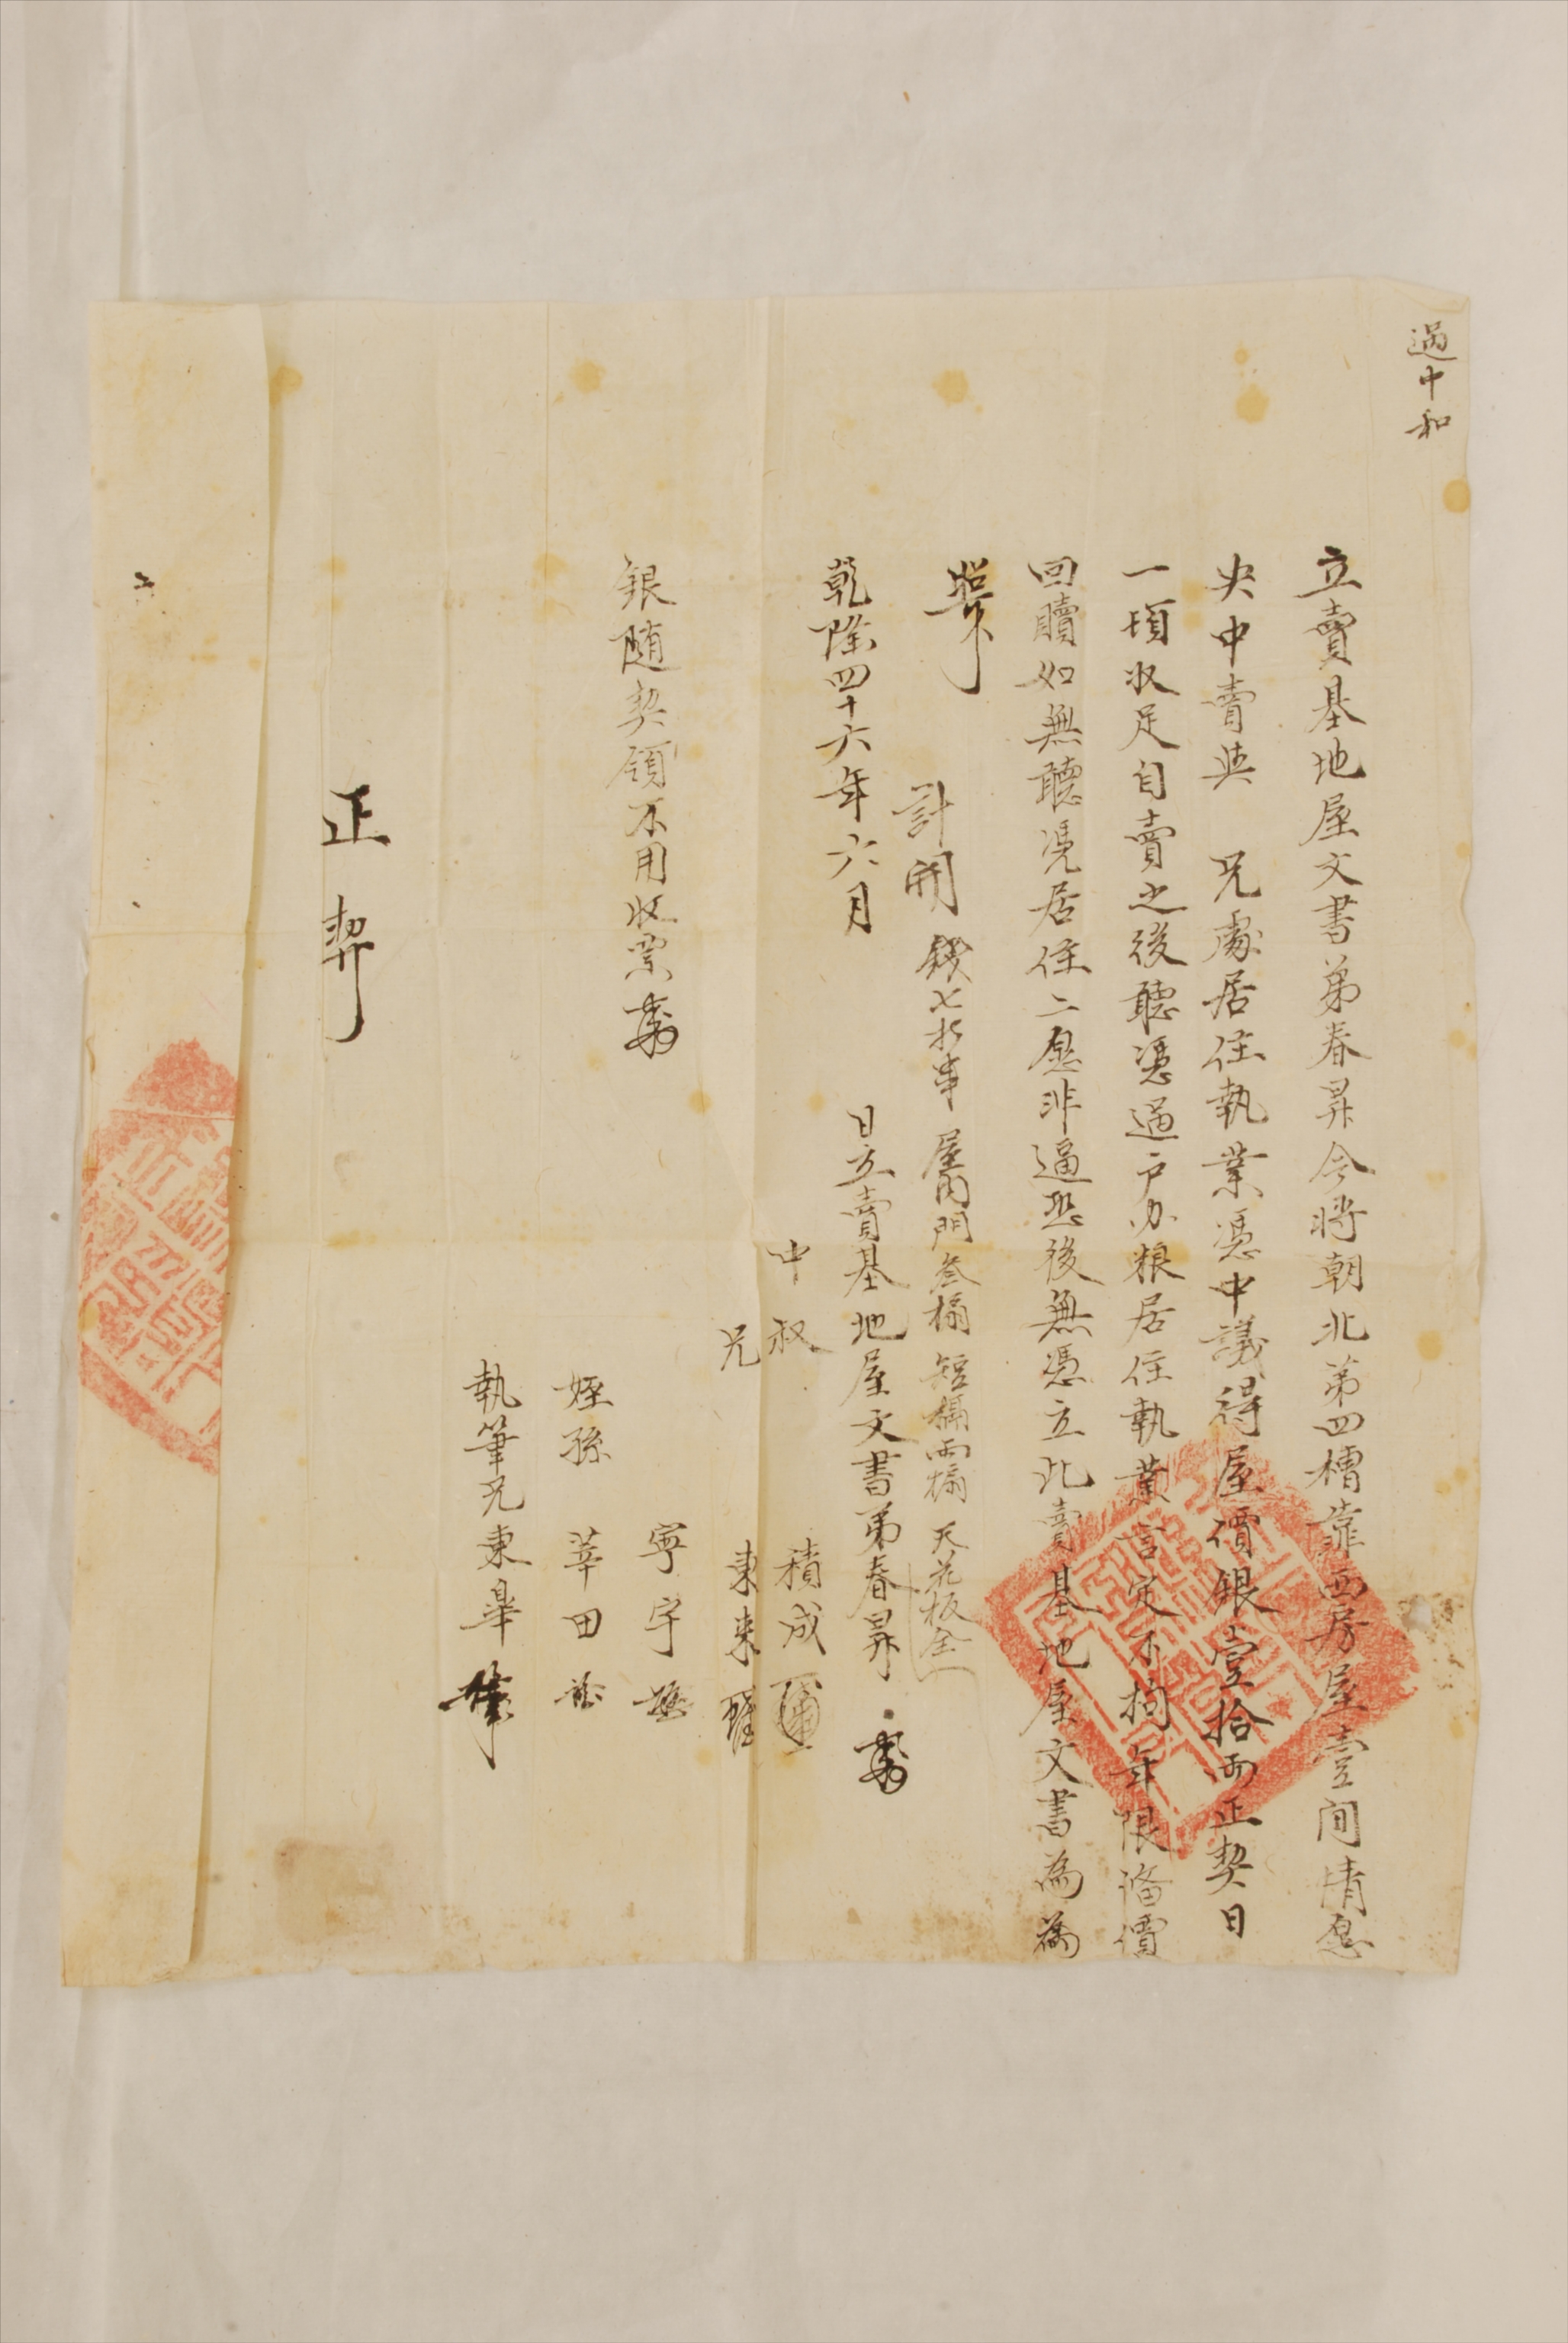 過中和
立賣基地屋文書弟春昇今將朝北第四楷靠西房屋壹间情愿
央中賣與 兄處居住執業憑中議得屋價銀壹拾両正契日
一頃收足自賣之後聽憑過户办粮居住執業言定不拘年限俻價
回贖如無聽凴居住二愿非逼恐後無憑立此賣基地屋文書為
照
計開 錢七折串 門叁搧 短槅両搧 天花板全
乾隆四十六年六月 日立賣基地屋文書弟春昇
中 叔 積成
兄 東来
寧宇
銀随契領不用收票
姪孫 莘田
執筆兄東皐
正契